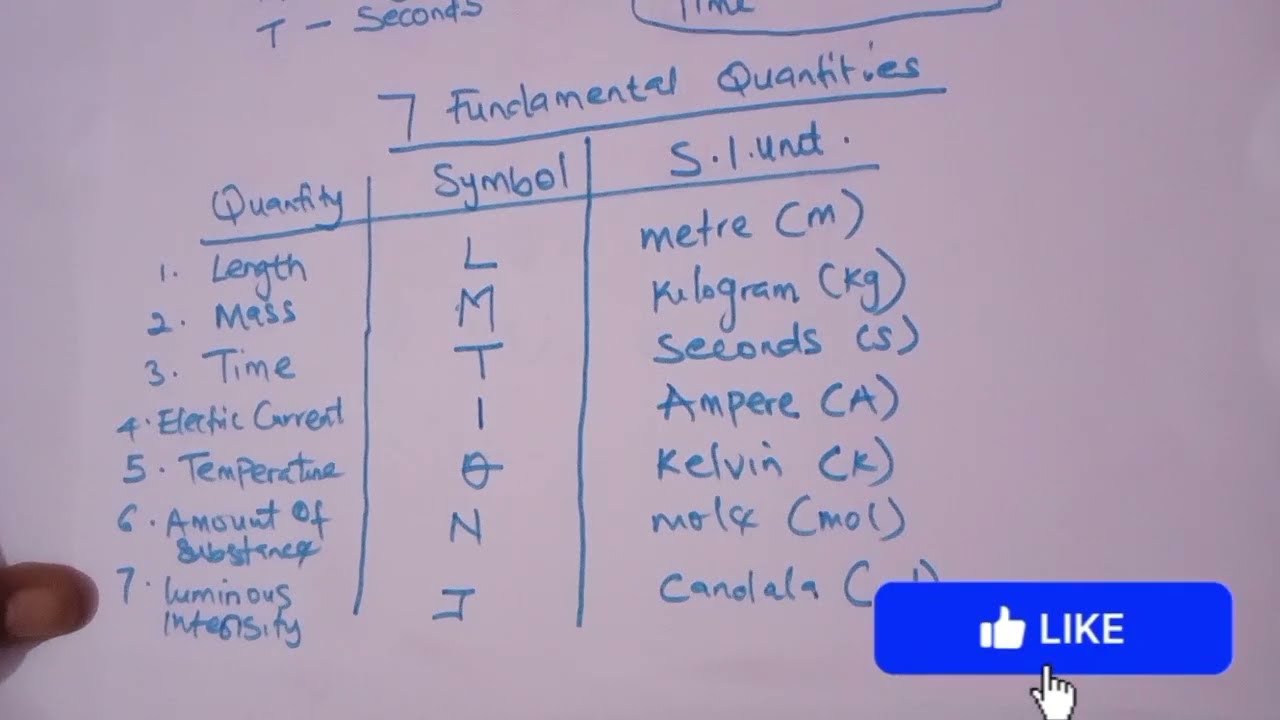 T - Seconds
Time
7 Fundamental Quantities
Quantity Symbol S.I.Unit.
1. Length L metre (m)
2. Mass M Kilogram (kg)
3. Time T Seconds (s)
4. Electric Current I Ampere (A)
5. Temperature θ Kelvin (K)
6. Amount Of N mole (mol)
Substance
7. Luminous J Candala
Intensity
LIKE